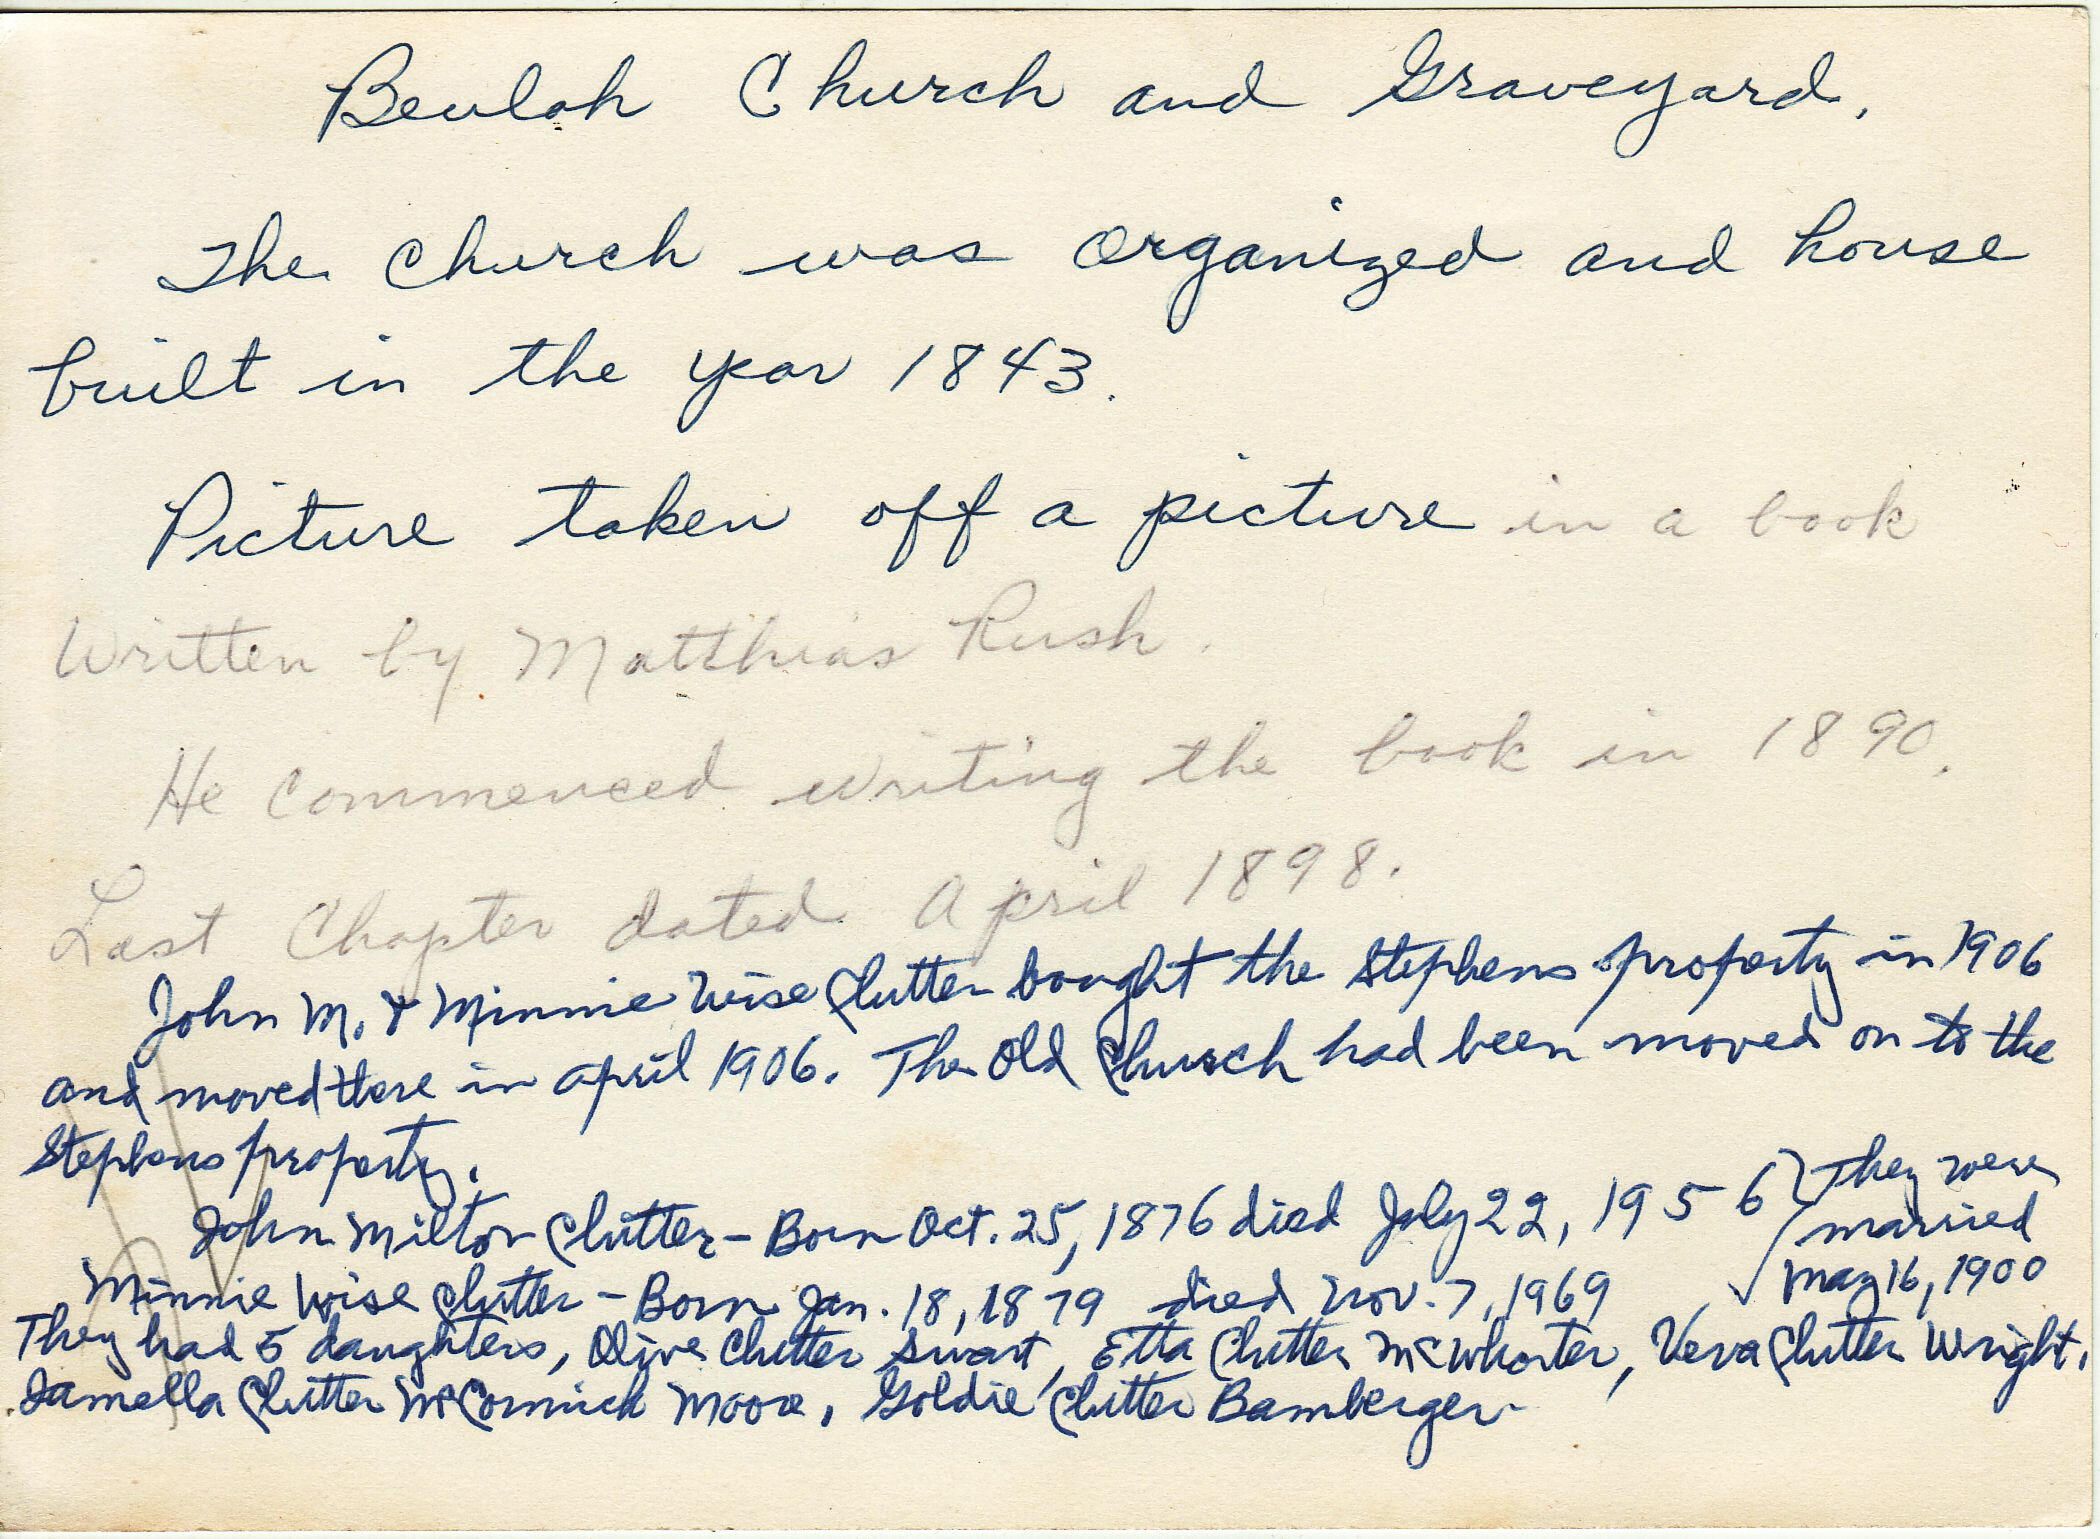 Beulah Church and Graveyard.
The Church was organized and house
built in the year 1843.
Picture taken off a picture in a book
Written by Matthias Rush.
He commenced writing the book in 1890.
Last Chapter dated April 1898.
John M. & Minnie Wise Clutter bought the Stephens property in 1906
and moved there in april 1906. The Old Church had been moved on to the
Stephens property.
John Milton Clutter - Born Oct. 25, 1876 died July 22, 1956 } They were
married
Minnie Wise Clutter - Born Jan. 18, 1879 died Nov. 7, 1969 May 16, 1900
They had 5 daughters, Olive Clutter Swart, Etta Clutter McWhorter, Verva Clutter Wright,
Jamella Clutter McCormick Moore, Goldie Clutter Bamberger